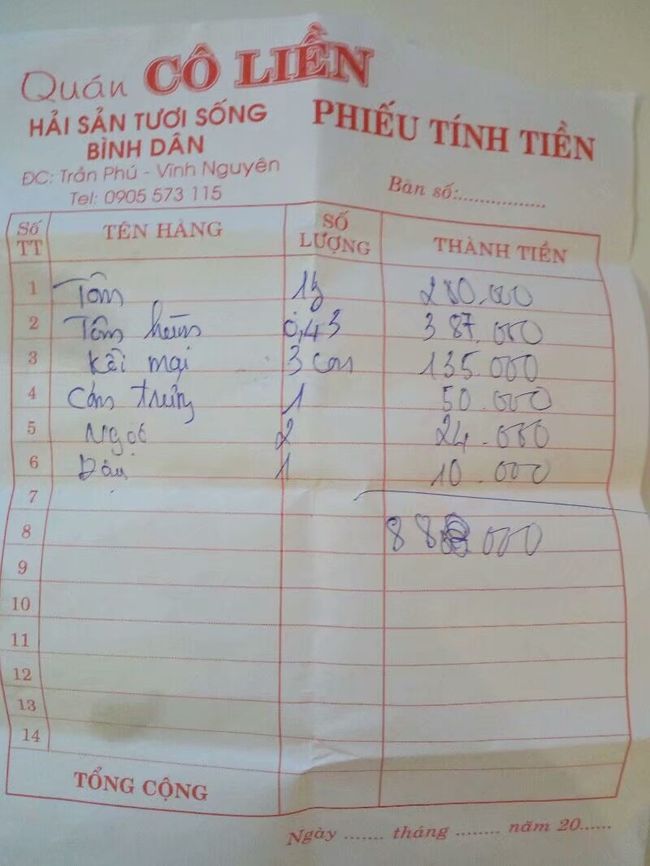 Quán CÔ LIỀN
HẢI SẢN TƯƠI SỐNG
BÌNH DÂN
ĐC: Trần Phú - Vĩnh Nguyên
Tel: 0905 573 115
PHIẾU TÍNH TIỀN
Bàn số:................
Số TT TÊN HÀNG SỐ LƯỢNG THÀNH TIỀN
1 Tôm 280.000
2 Tôm hùm 0,43 387.000
3 mại 3 con 135.000
4 Cơm trứng 1 50.000
5 Ngọt 2 24.000
6 1 10.000
7
8 000
9
10
11
12
13
14
TỔNG CỘNG
Ngày ....... tháng ........ năm 20......